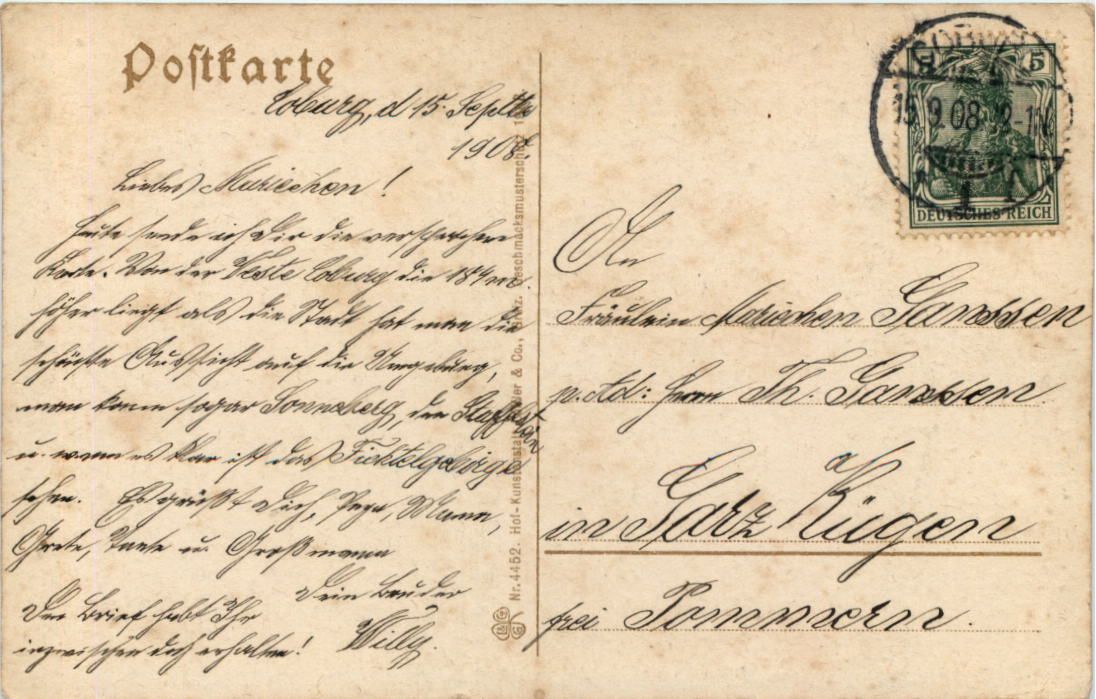 Postkarte
Coburg, d 15. Septbr
1908.
Liebes Mariechen!
Heute sende ich Dir die versprochene
Karte. Von der Veste Coburg die 184 m.
höher liegt als die Stadt hat man die
schönste Aussicht auf die Umgebung,
man kann sogar Sonneberg, den Staffelstein
u. wenn es klar ist das Fichtelgebirge
sehen. Es grüßt Dich, Papa, Mama,
Grete, Tante u. Großmama
Dein Bruder
Willy.
Den Brief habt Ihr
inzwischen doch erhalten!
Nr. 4452. Hof-Kunstanstalt & Co., Geschmacksmusterschutz
5
15.9.08. 12-1N
1
DEUTSCHES REICH
An
Fräulein Mariechen Janssen
p. Ad: Herrn Th. Janssen.
in Garz Rügen
frei Pommern.